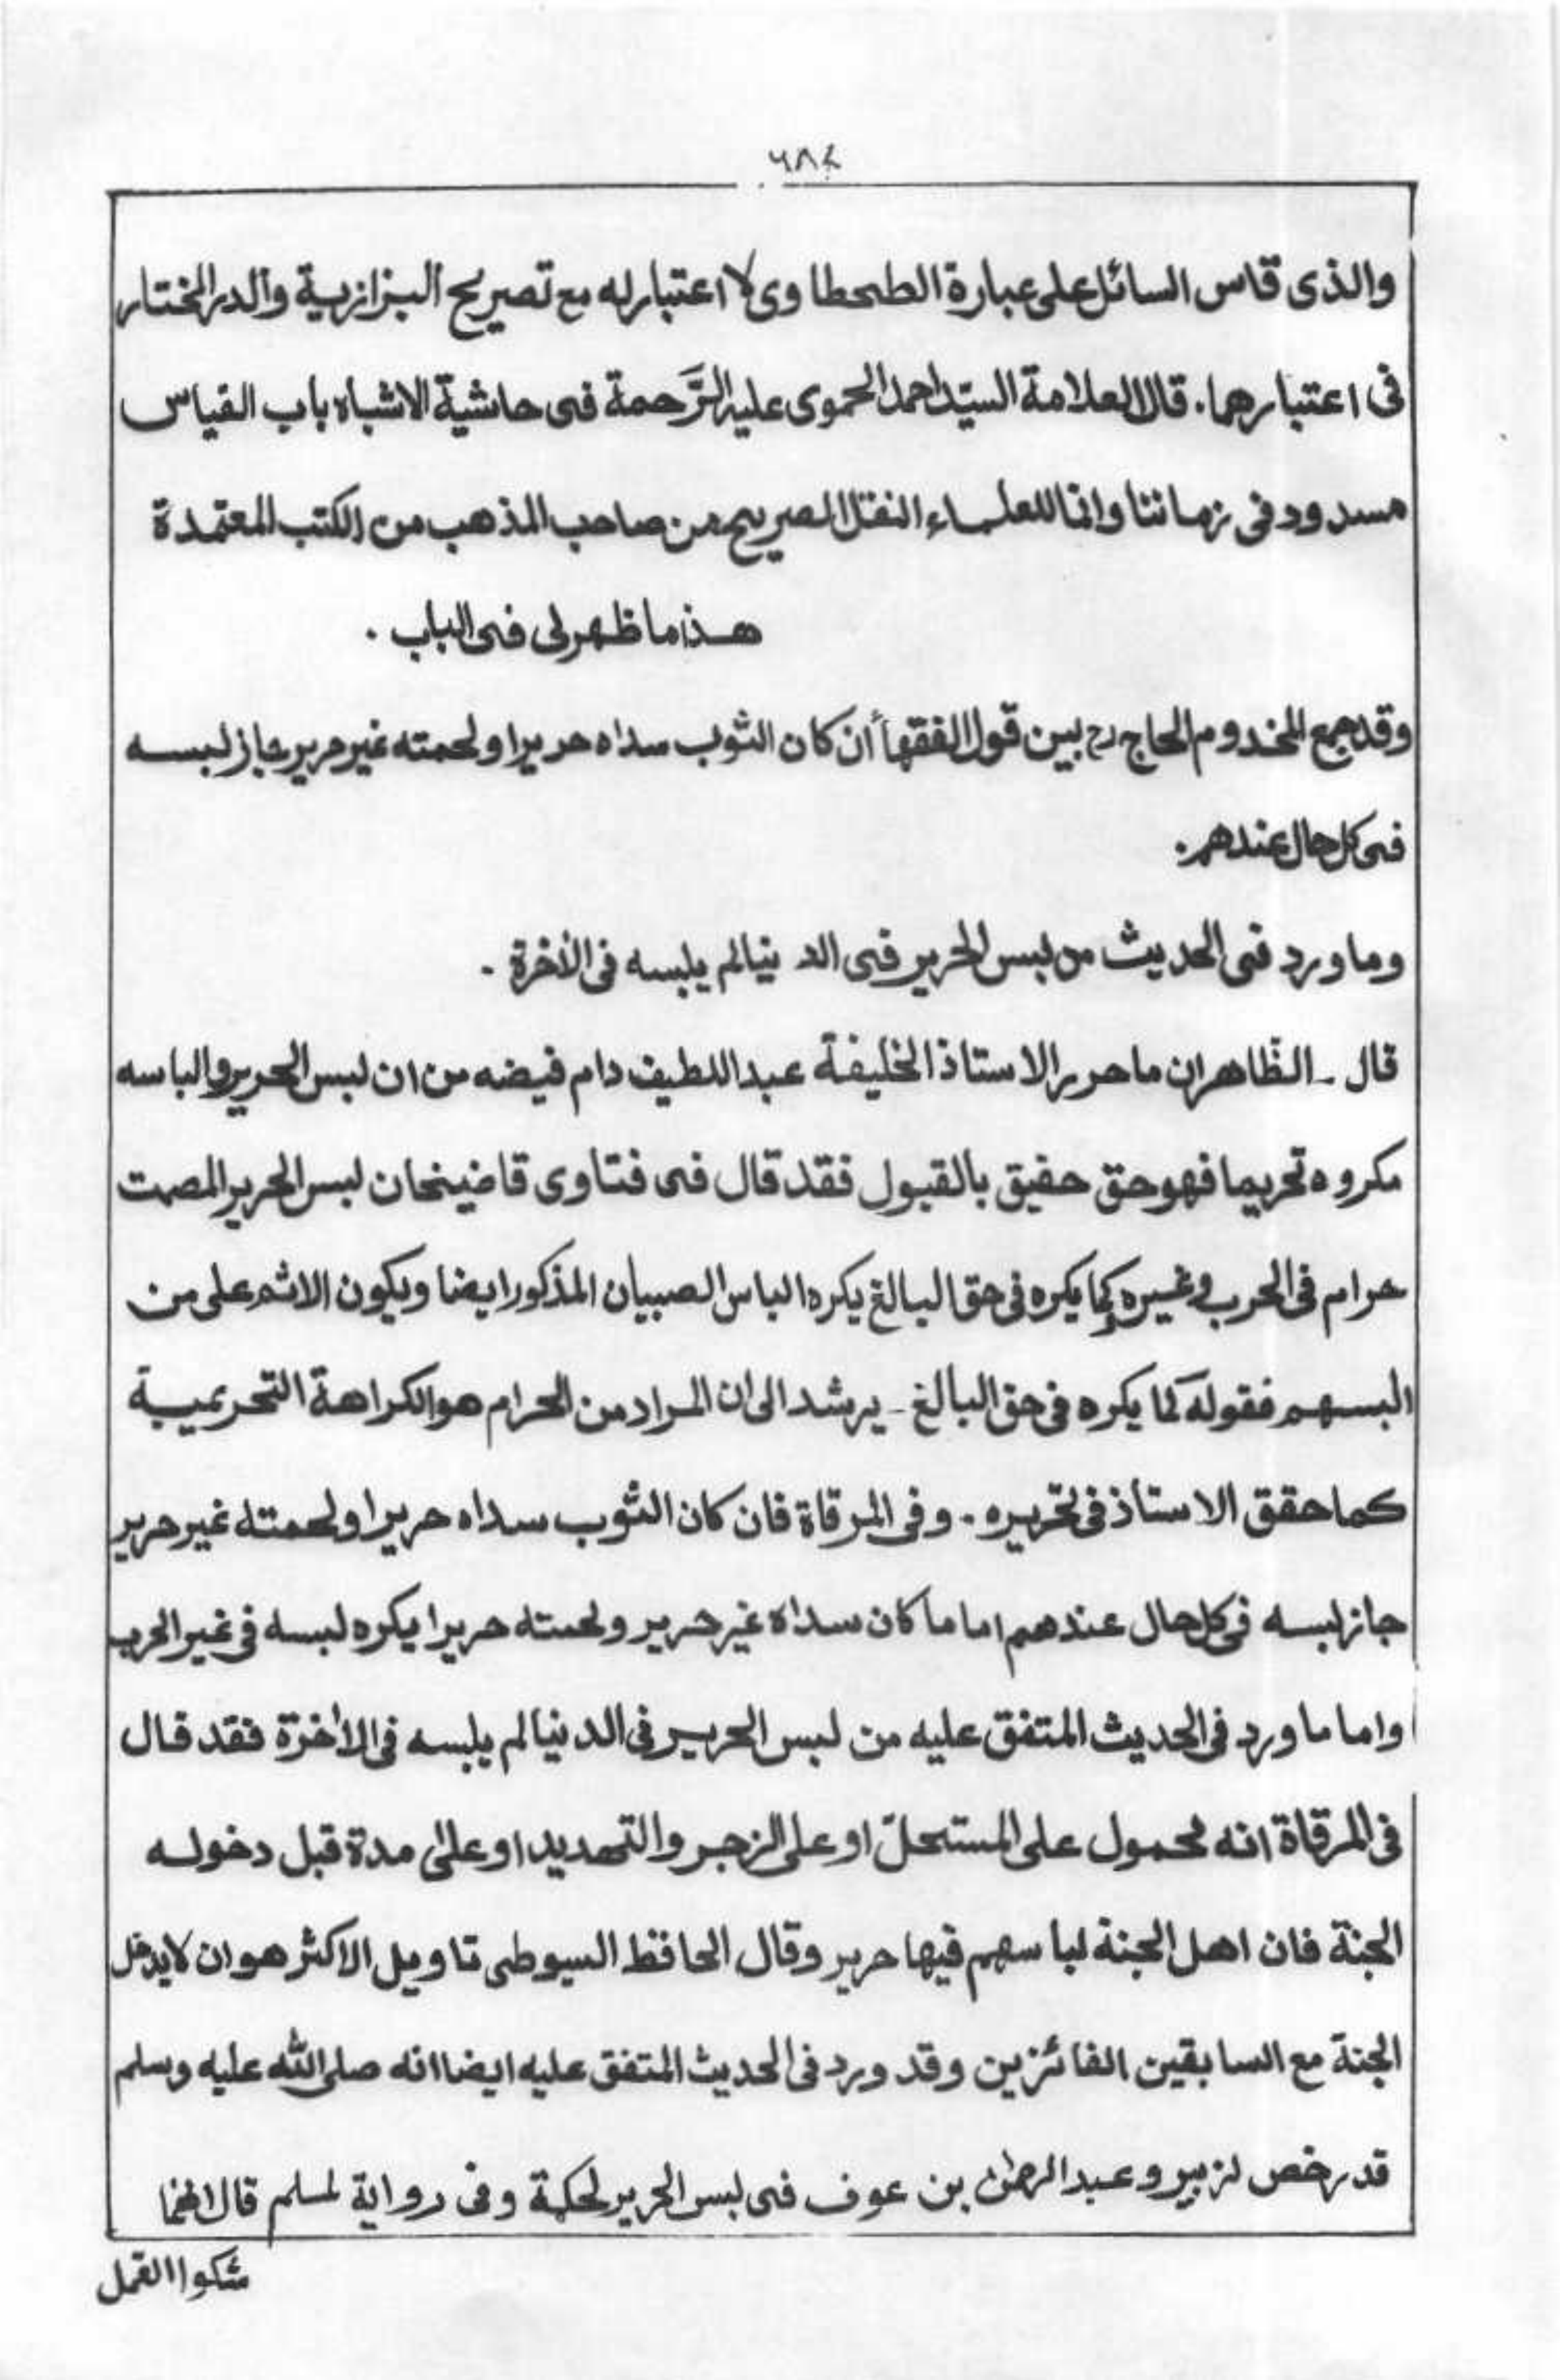 ٦٨٤
والذى قاس السائل على عبارة الطحطاوى لا اعتبارله مع تصريح البزازية والدر المختار
فى اعتبارهما. قال العلامة السيّد احمد الحموى عليه الرَّحمة فى حاشية الاشباه باب القياس
مسدود فى زماننا وانما للعلماء النقل الصريح من صاحب المذهب من الكتب المعتمدة
هذا ما ظهرلى فى الباب .
وقد جمع المخدوم الحاج رح بين قول الفقهأ ان كان الثوب سداه حريرا ولحمته غير حرير جاز لبسه
فى كل حال عندهم.
وما ورد فى الحديث من لبس الحرير فى الدنيا لم يلبسه فى الأخرة -
قال - الظّاهر ان ما حرر الاستاذ الخليفة عبد اللطيف دام فيضه من ان لبس الحرير والباسه
مكروه تحريما فهو حق حقيق بالقبول فقد قال فى فتاوى قاضيخان لبس الحرير المصمت
حرام فى الحرب وغيره كما يكره فى حق البالغ يكره الباس الصبيان المذكور ايضا ويكون الاثم على من
البسهم فقوله كما يكره فى حق البالغ - يرشد الى ان المراد من الحرام هو الكراهة التحريمية
كما حقق الاستاذ فى تحريره - وفى المرقاة فان كان الثوب سداه حريرا ولحمته غير حرير
جاز لبسه فى كل حال عندهم اما ما كان سداه غير حرير ولحمته حريرا يكره لبسه فى غير الحرب
واما ما ورد فى الحديث المتفق عليه من لبس الحرير فى الدنيا لم يلبسه فى الأخرة فقد قال
فى المرقاة انه محمول على المستحلّ او على الزجر والتهديد او على مدة قبل دخوله
الجنة فان اهل الجنة لباسهم فيها حرير وقال الحافظ السيوطى تاويل الاكثر هو ان لا يدخل
الجنة مع السابقين الفائزين وقد ورد فى الحديث المتفق عليه ايضا انه صلى الله عليه وسلم
قد رخص لزبير وعبد الرحمٰن بن عوف فى لبس الحرير لحكمة وفى رواية لمسلم قال انهما
شكوا القمل